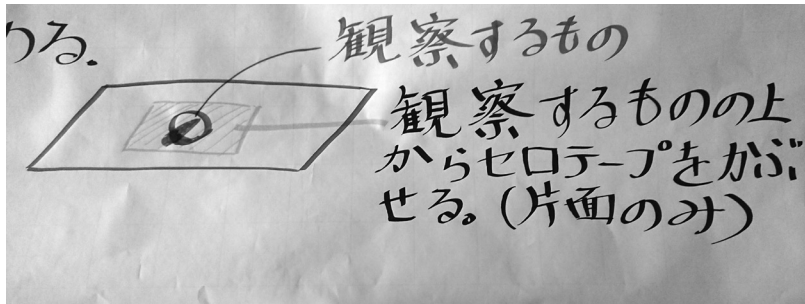 わる.
観察するもの
観察するものの上
からセロテープをかぶ
せる。(片面のみ)